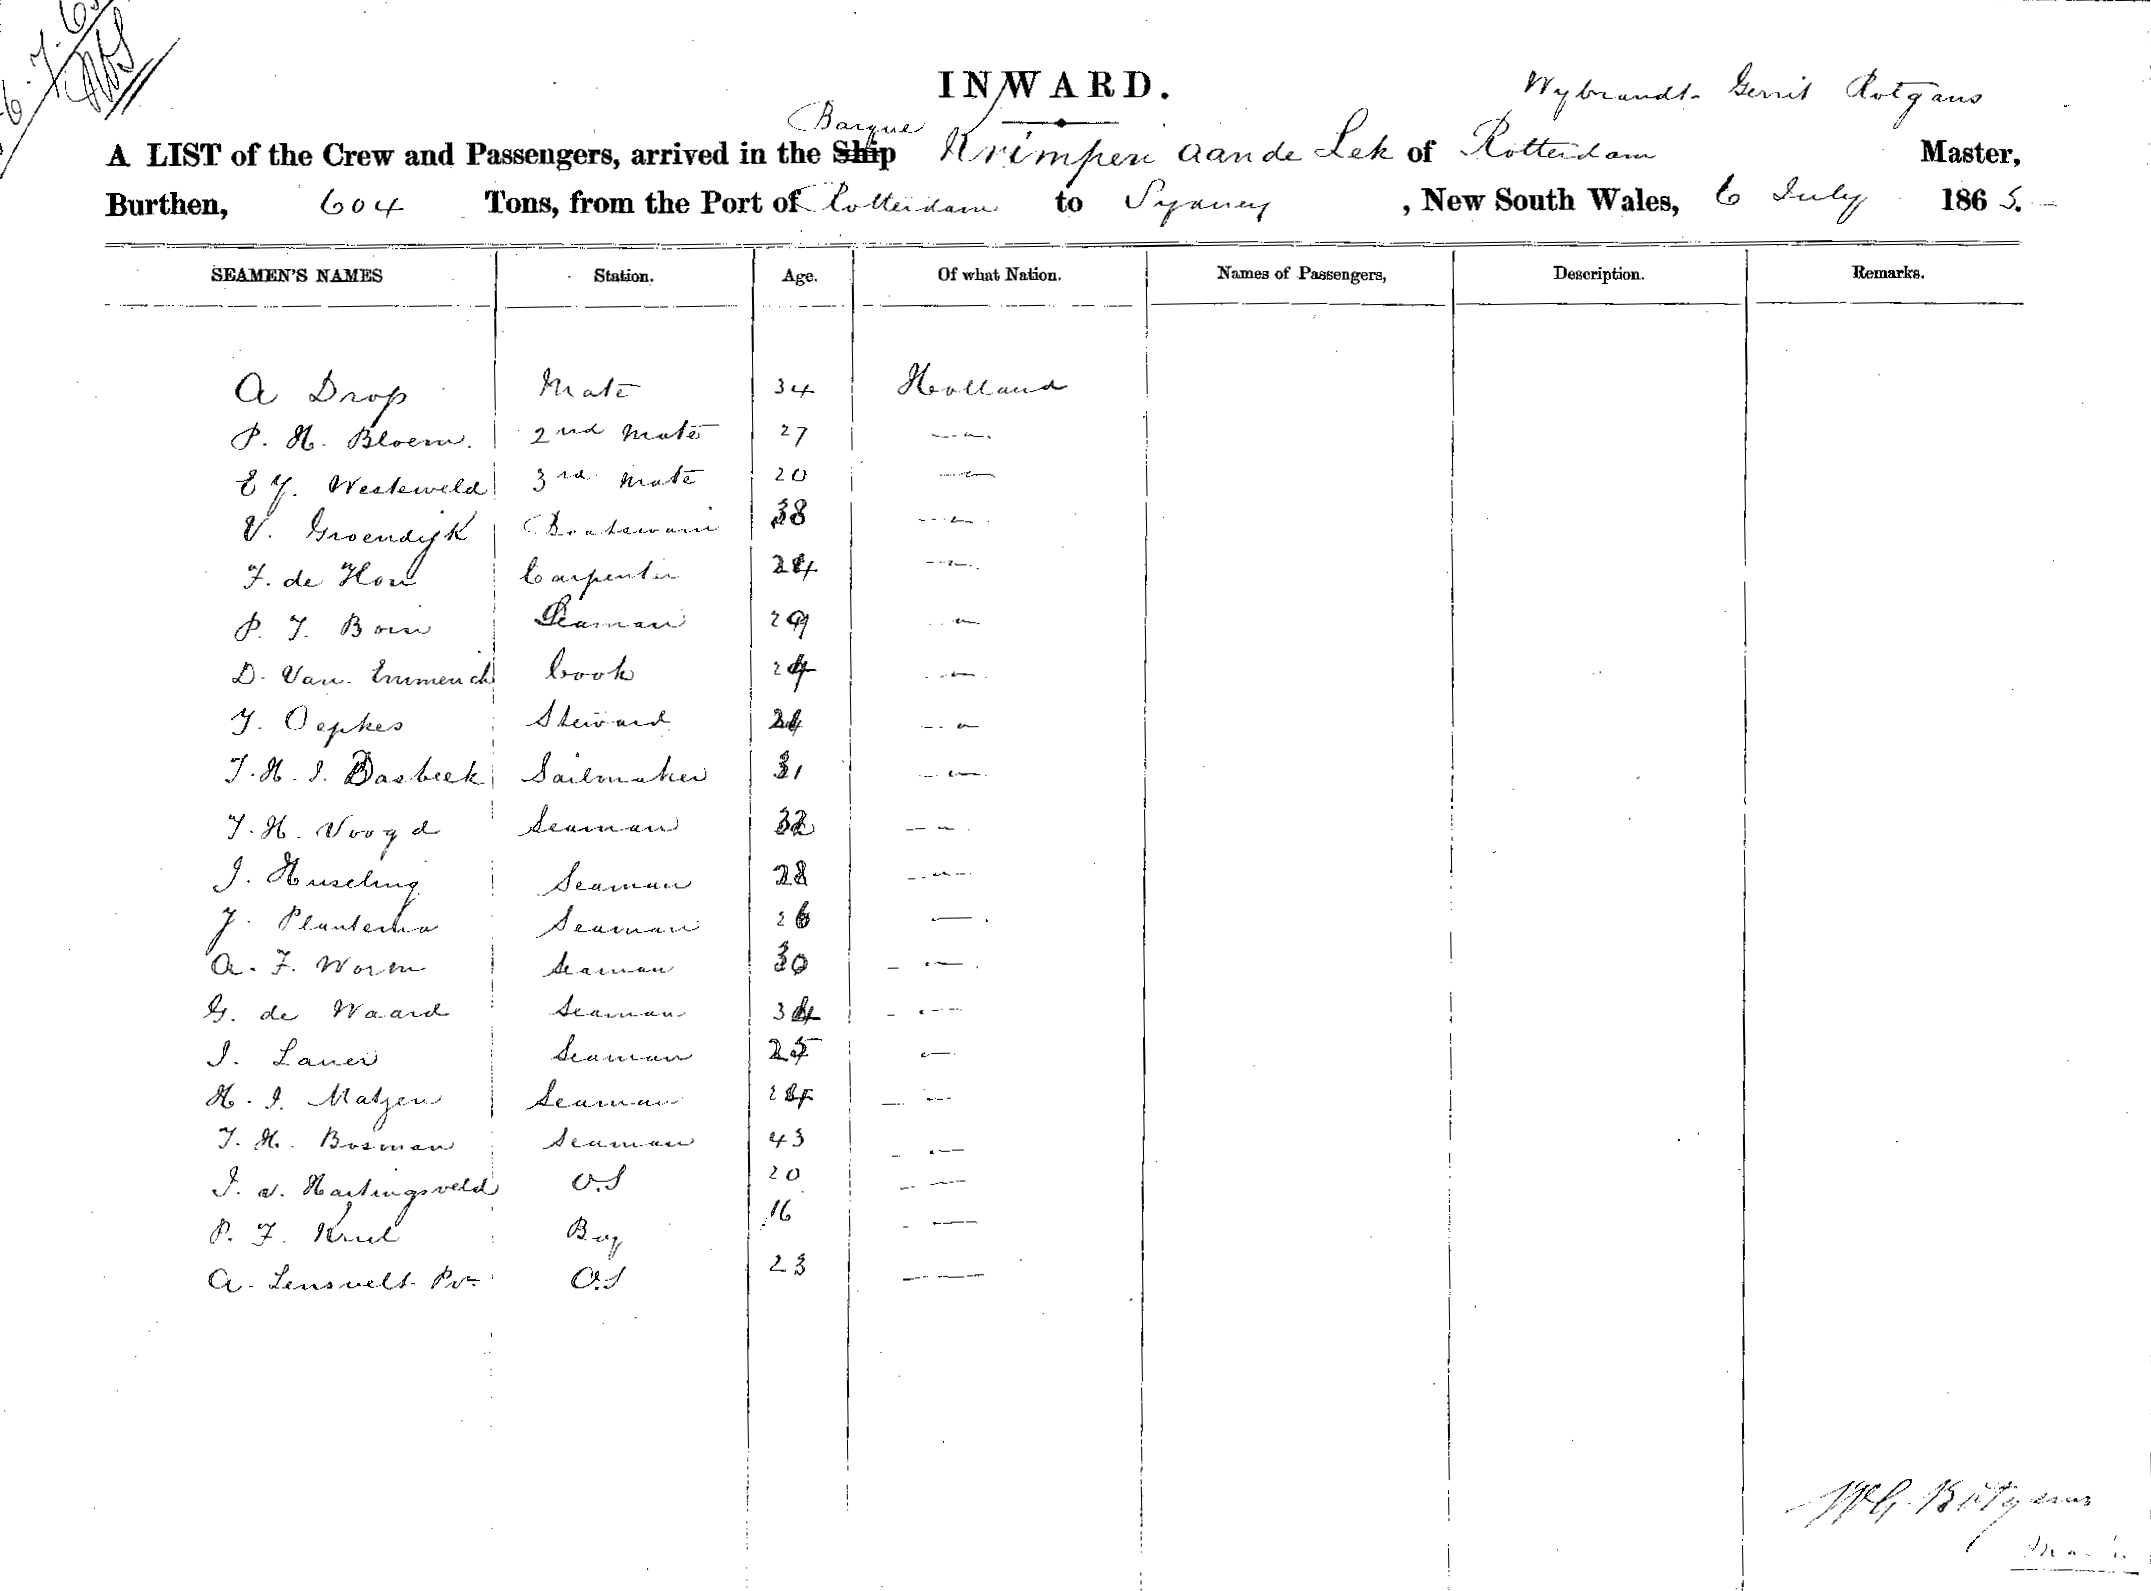 6.7.65
INWARD.
Wybrandt Gerrit Rotgans
Barque
A LIST of the Crew and Passengers, arrived in the Ship Krimpen aan de Lek of Rotterdam Master,
Burthen, 604 Tons, from the Port of Rotterdam to Sydney, New South Wales, 6 July 1865.
SEAMEN'S NAMES Station. Age. Of what Nation. Names of Passengers, Description. Remarks.
A Drop Mate 34 Holland
P. H. Bloem. 2nd Mate 27 —"—
E J. Westeweld 3rd Mate 20 —"—
V. Groendijk Boatswain 38 —"—
F. de Hon Carpenter —"—
P. J. Boin Seaman 29 —"—
D. Van Emmerich Cook 24 —"—
J. Oepkes Steward 24 —"—
J. H. I. Dasbeek Sailmaker 31 —"—
J. H. Voogd Seaman 32 —"—
J. Huseling Seaman 28 —"—
J. Plantema Seaman 26 —"—
A. F. Worm Seaman 30 —"—
G. de Waard Seaman —"—
J. Lauer Seaman 25 —"—
H. I. Matzen Seaman —"—
J. H. Bosman Seaman 43 —"—
J. v. Hartingsveld O.S 20 —"—
P. F. Krul Boy 16 —"—
A. Lensvelt Pr. O.S 23 —"—
W G. Rotgans